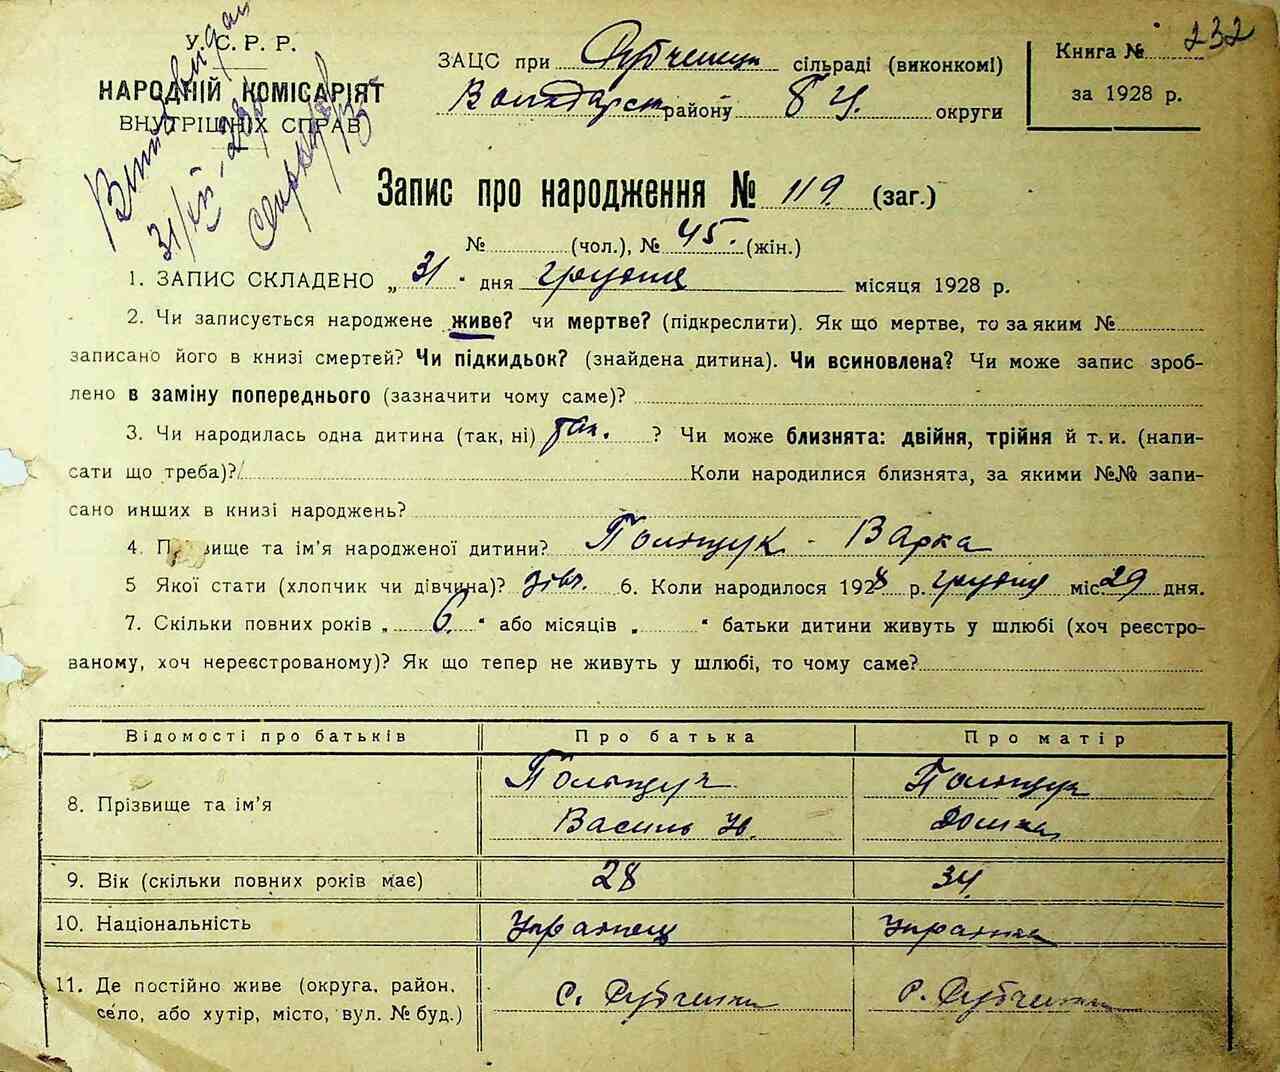 232
У. С. Р. Р.
НАРОДНІЙ КОМІСАРІЯТ
ВНУТРІШНІХ СПРАВ
31/XII-28
ЗАЦС при сільраді (виконкомі)
Володарськ району БЦ. округи
Книга №
за 1928 р.
Запис про народження № 119. (заг.)
№ (чол.), № 45. (жін.)
1. ЗАПИС СКЛАДЕНО „ 31 “ дня грудня місяця 1928 р.
2. Чи записується народжене живе? чи мертве? (підкреслити). Як що мертве, то за яким №
записано його в книзі смертей? Чи підкидьок? (знайдена дитина). Чи всиновлена? Чи може запис зроб-
лено в заміну попереднього (зазначити чому саме)?
3. Чи народилась одна дитина (так, ні) так. ? Чи може близнята: двійня, трійня й т. и. (напи-
сати що треба)? Коли народилися близнята, за якими №№ запи-
сано инших в книзі народжень?
4. Прізвище та ім’я народженої дитини? Поліщук - Варка
5 Якої стати (хлопчик чи дівчина)? дівч. 6. Коли народилося 1928 р. грудня міс. 29 дня.
7. Скільки повних років „ 6. “ або місяців „ “ батьки дитини живуть у шлюбі (хоч реєстро-
ваному, хоч нереєстрованому)? Як що тепер не живуть у шлюбі, то чому саме?
Відомості про батьків Про батька Про матір
8. Прізвище та ім’я Поліщук Поліщук
Василь
9. Вік (скільки повних років має) 28 34
10. Національність Українець Українка
11. Де постійно живе (округа, район, с. с.
село, або хутір, місто, вул. № буд.)